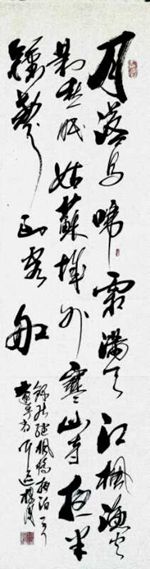 月落烏啼霜滿天江楓漁火
對愁眠姑蘇城外寒山寺夜半
鐘聲到客船
錄張繼楓橋夜泊